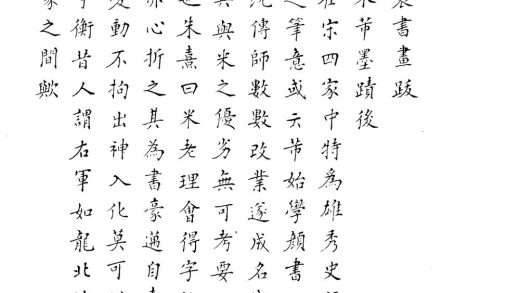 書畫跋
芾墨蹟後
宋四家中特為雄秀史
之筆意或云芾始學顏書
沈傳師數數改業遂成名
與米之優劣無可考要
也朱熹曰米老理會得字
亦心折之其為書豪邁自
動不拘出神入化莫可
衡昔人謂右軍如龍北
家之間歟